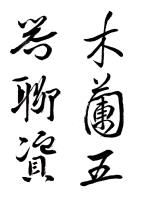 木蘭五
器聊資